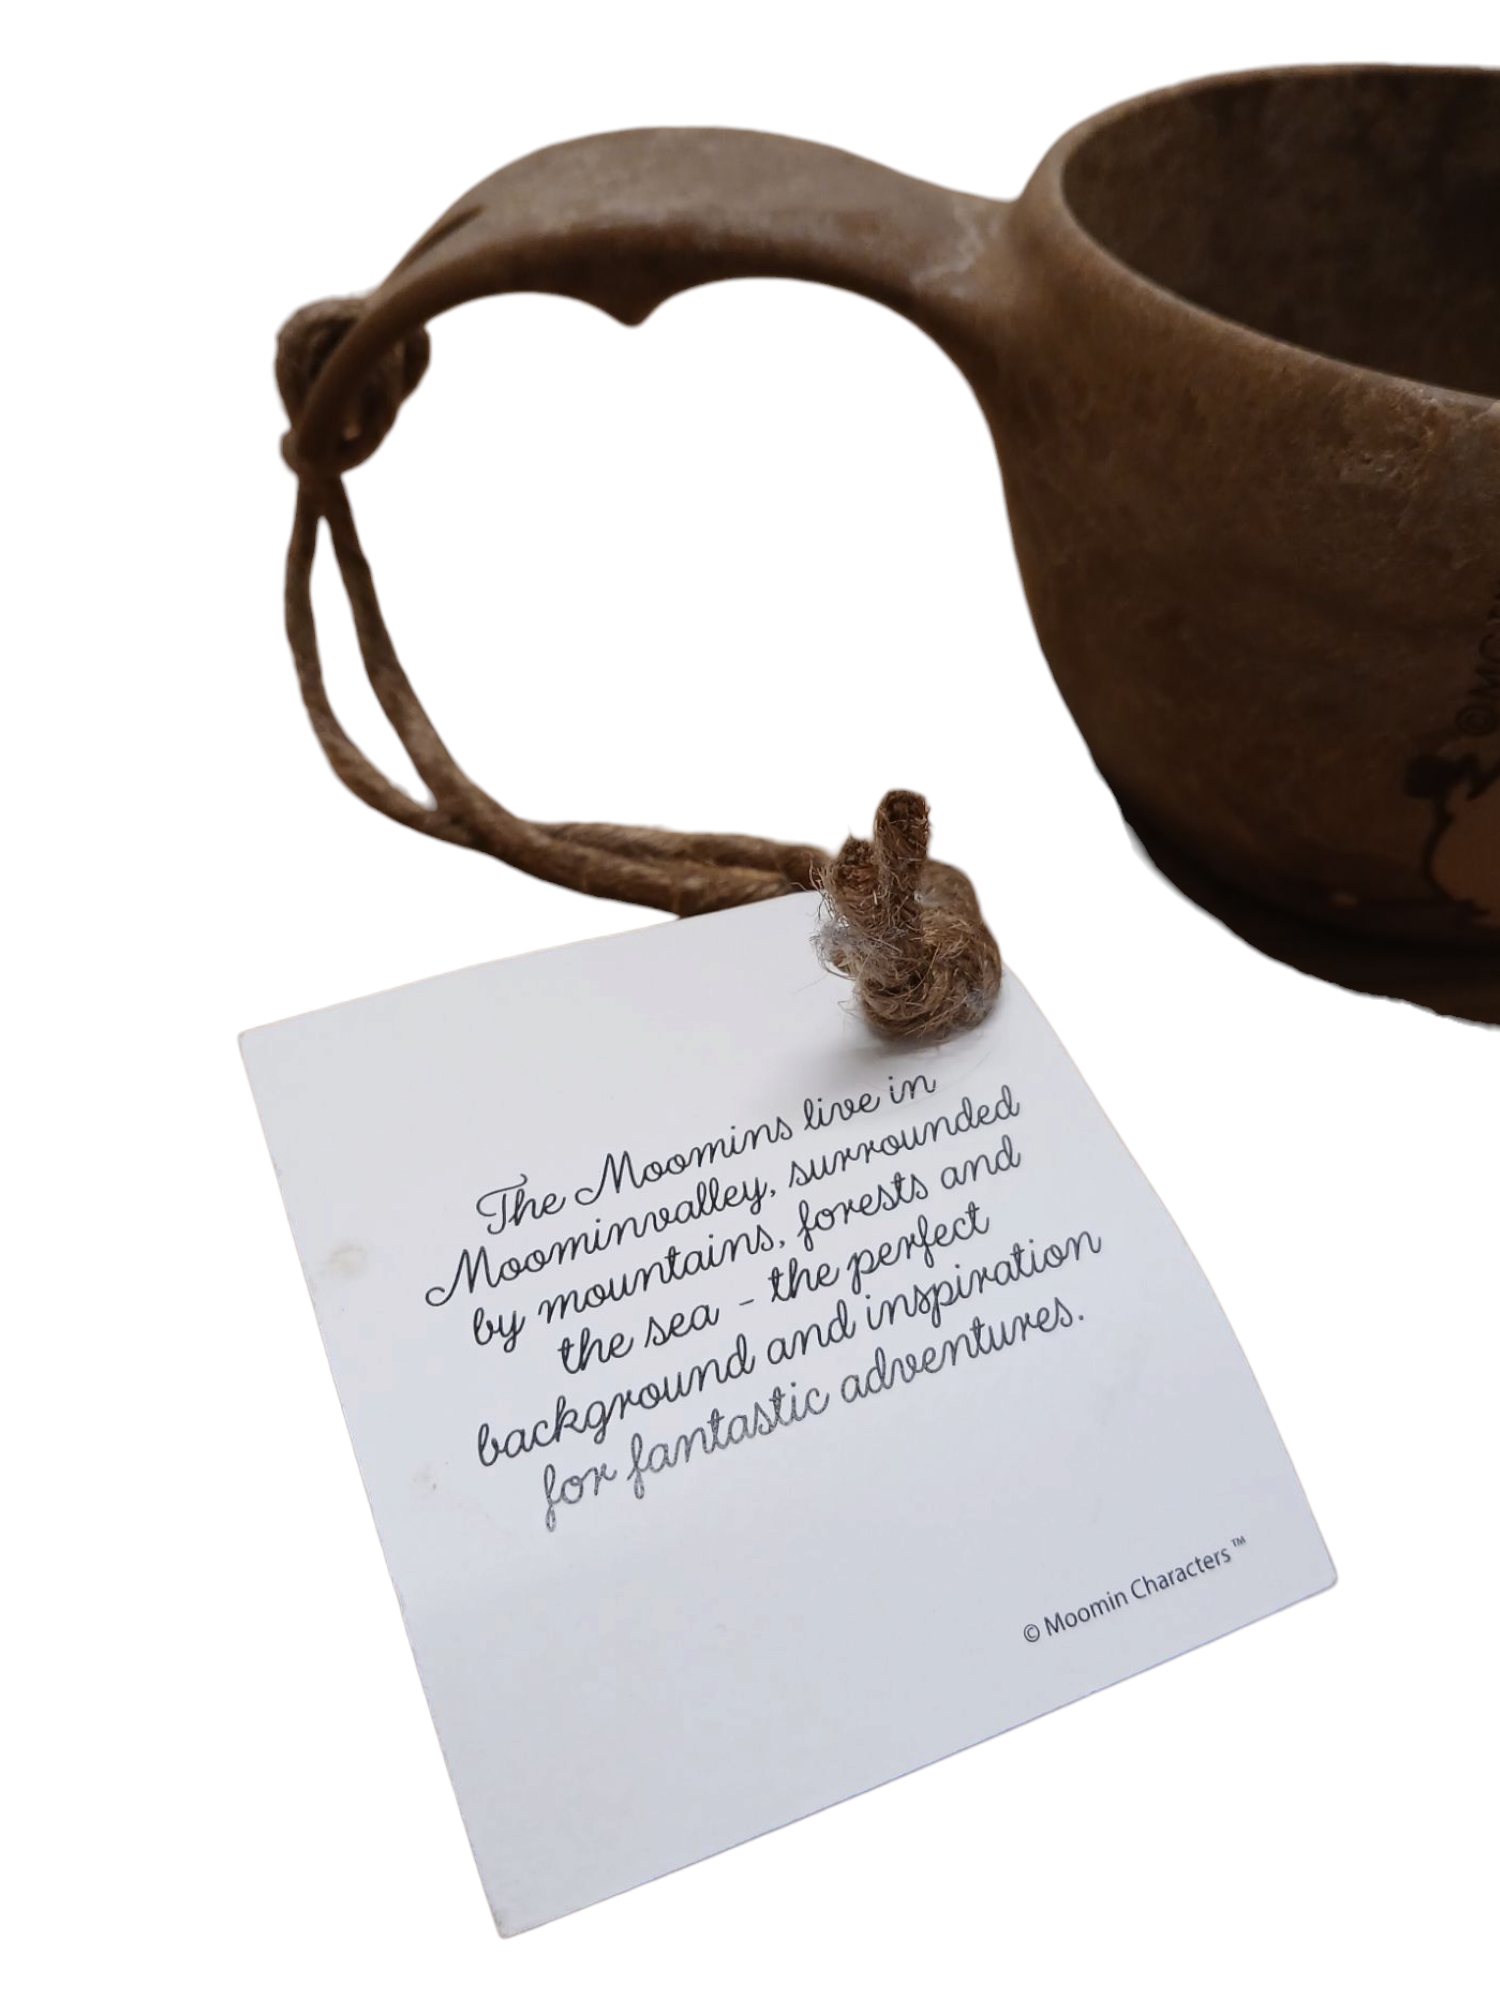 The Moomins live in
Moominvalley, surrounded
by mountains, forests and
the sea - the perfect
background and inspiration
for fantastic adventures.
© Moomin Characters™